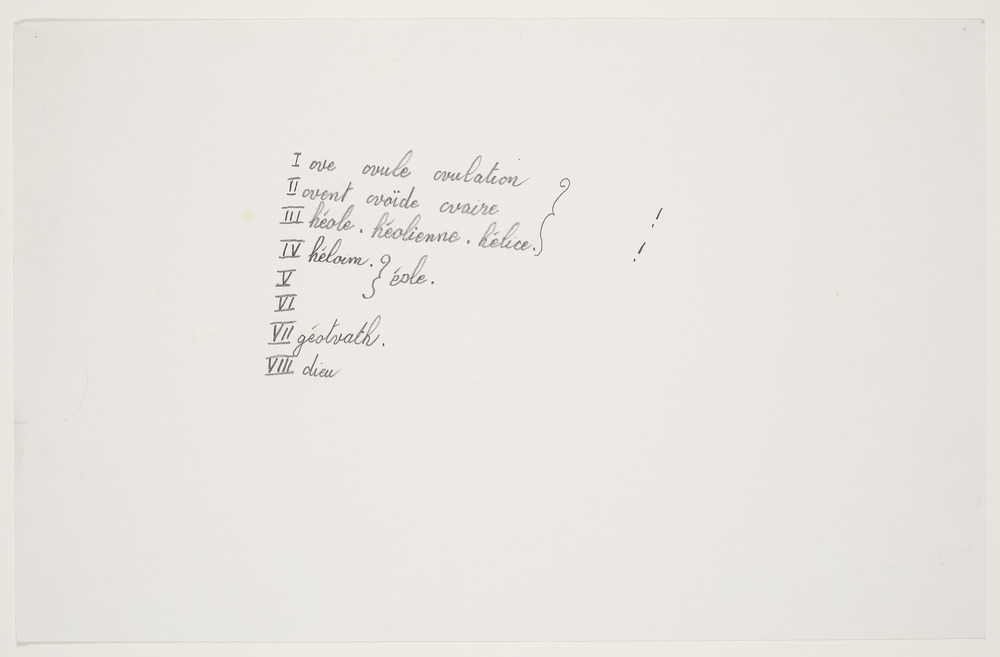 I ove ovule ovulation
II ovent ovoïde ovaire
III héole. héolienne. hélice. } !
IV héloim. } éole. !
V
VI
VII géotvath.
VIII dieu